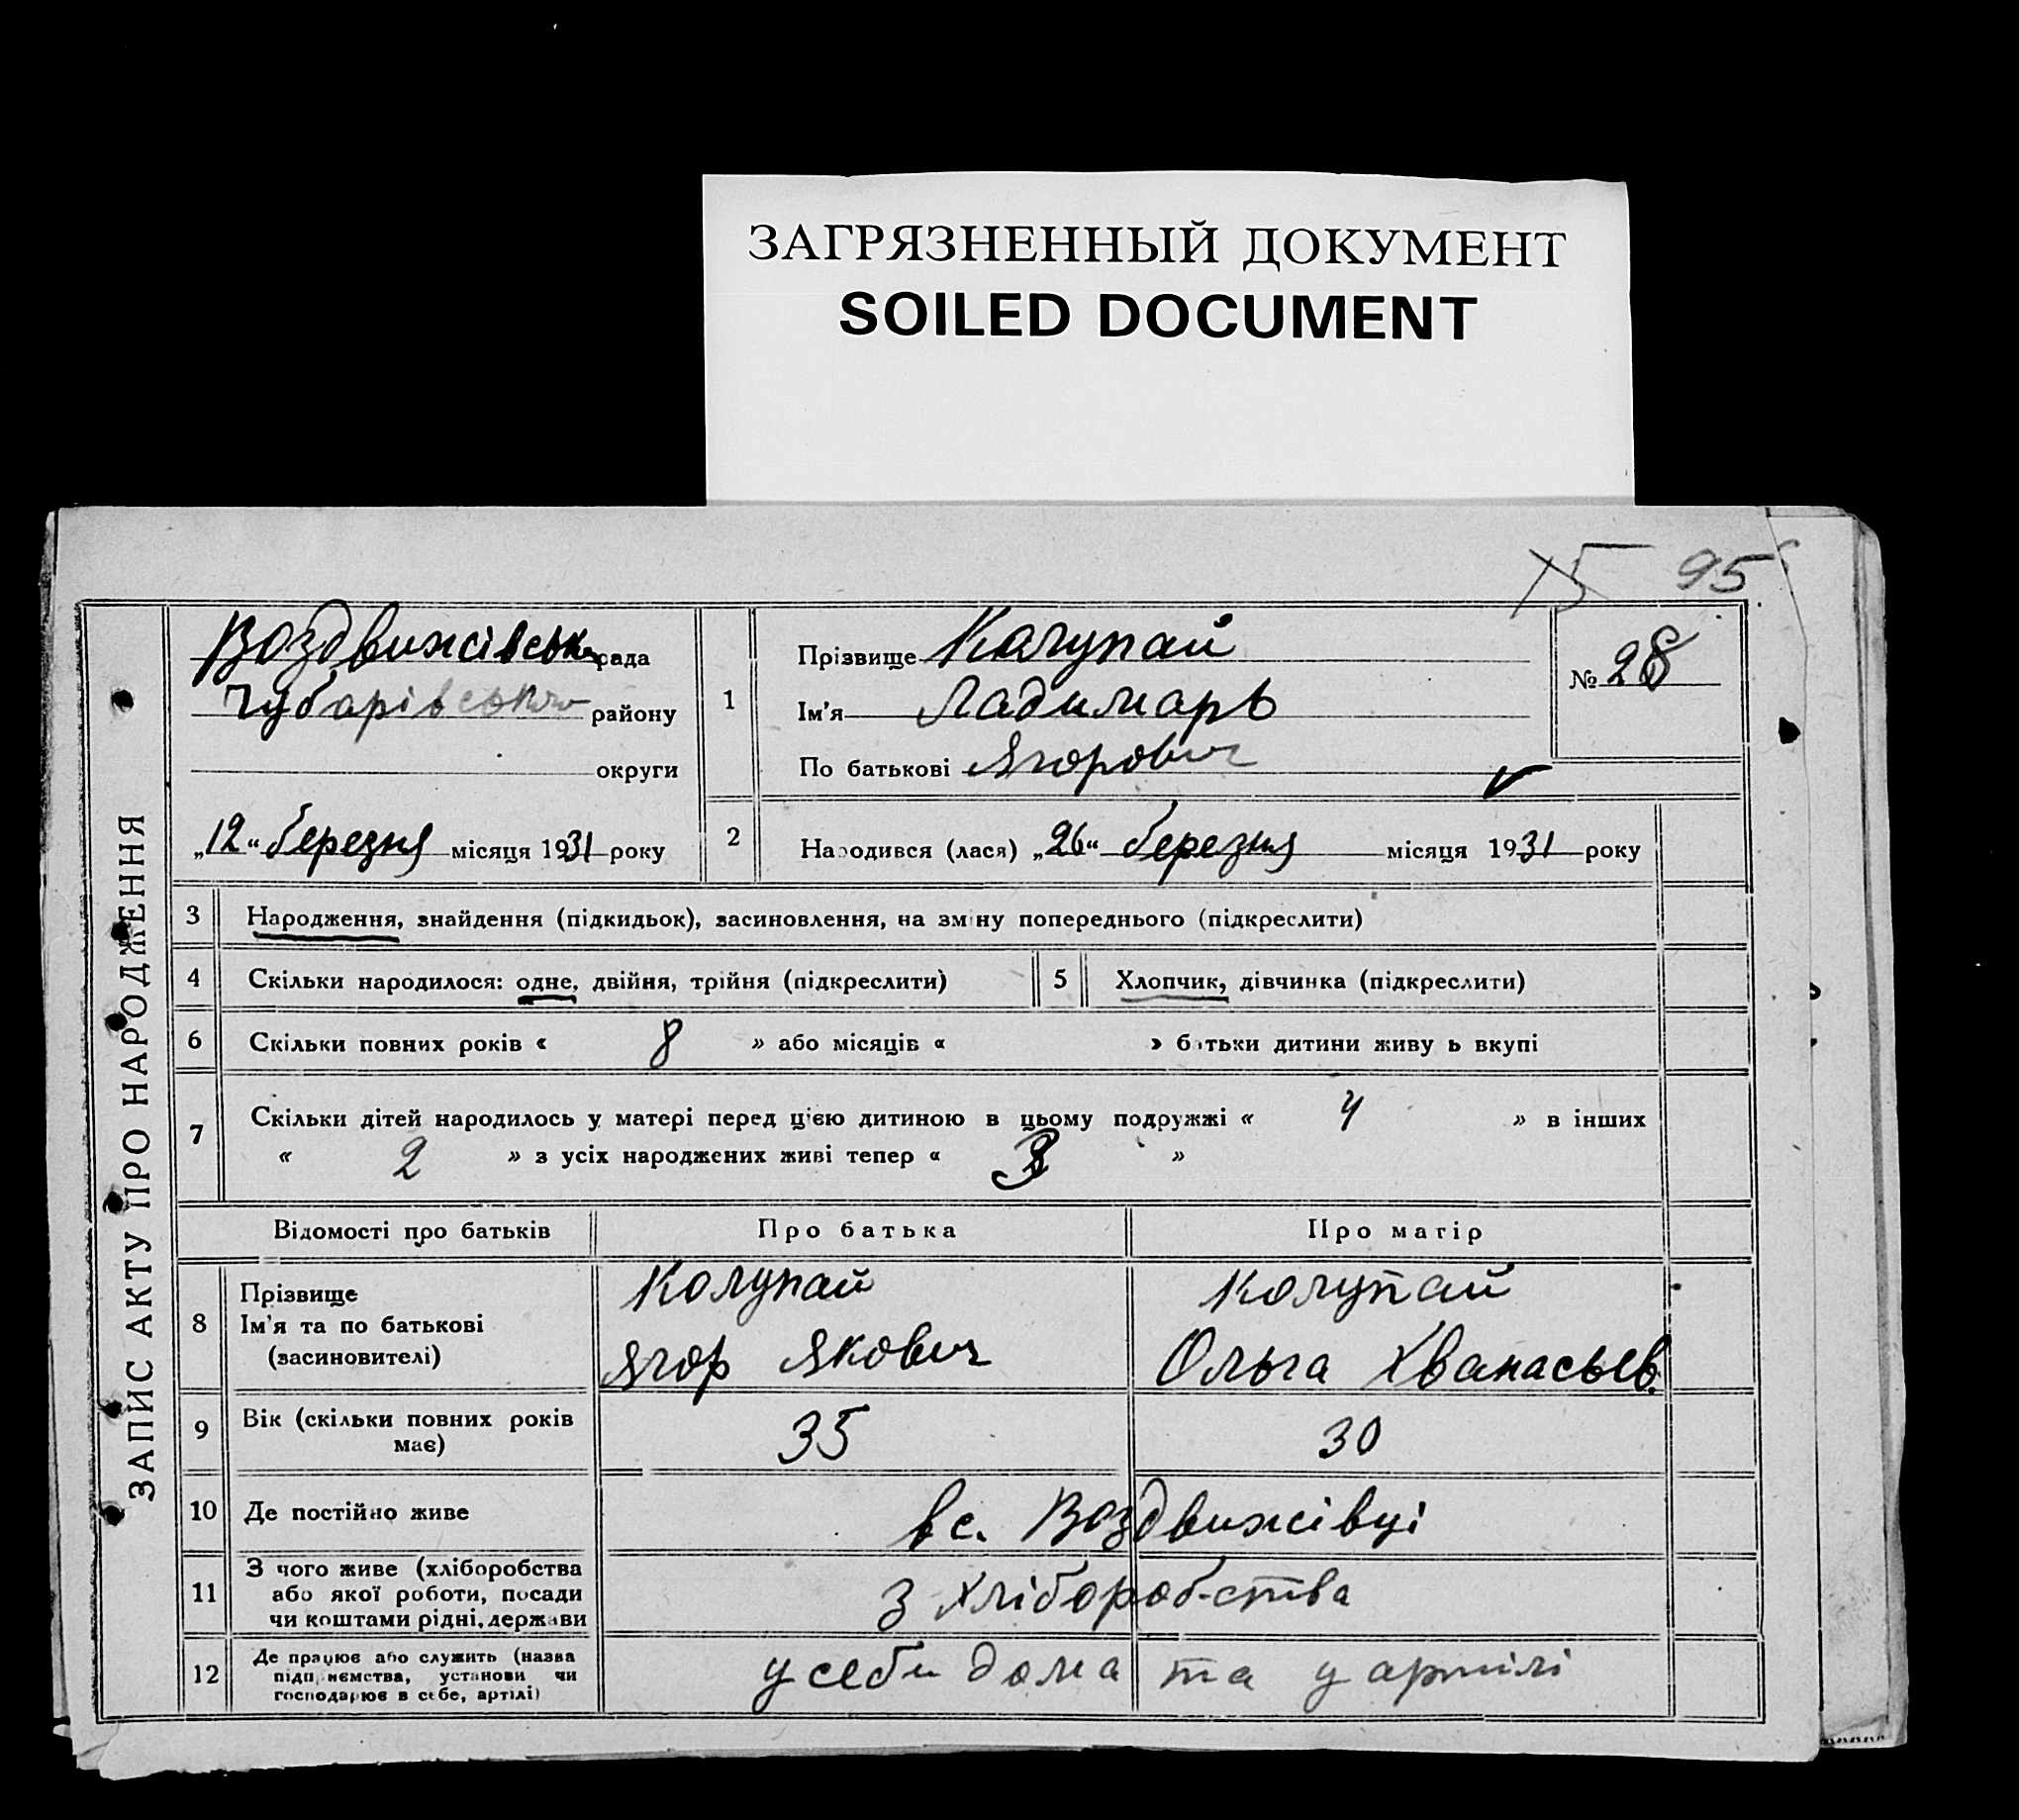 ЗАГРЯЗНЕННЫЙ ДОКУМЕНТ
SOILED DOCUMENT
15 95
ЗАПИС АКТУ ПРО НАРОДЖЕННЯ
Воздвижівська рада
Чубарівського району
округи
„12“ березня місяця 1931 року
1
Прізвище Колупай
Ім'я Ладимарь
По батькові Ягорович
№ 28
2 Народився (лася) „26“ березня місяця 1931 року
3 Народження, знайдення (підкидьок), засиновлення, на зміну попереднього (підкреслити)
4 Скільки народилося: одне, двійня, трійня (підкреслити) 5 Хлопчик, дівчинка (підкреслити)
6 Скільки повних років « 8 » або місяців « » батьки дитини живуть вкупі
7 Скільки дітей народилось у матері перед цією дитиною в цьому подружжі « 4 » в інших
« 2 » з усіх народжених живі тепер « 3 »
Відомості про батьків Про батька Про матір
8 Прізвище Колупай Колупай
Ім'я та по батькові Ягор Якович Ольга Хванасьев.
(засиновителі)
9 Вік (скільки повних років має) 35 30
10 Де постійно живе в с. Воздвижівці
11 З чого живе (хліборобства
або якої роботи, посади
чи коштами рідні, держави
з хліборобства
12 Де працює або служить (назва
підприємства, установи чи
господарює в себе, артілі)
у себи дома та у артілі